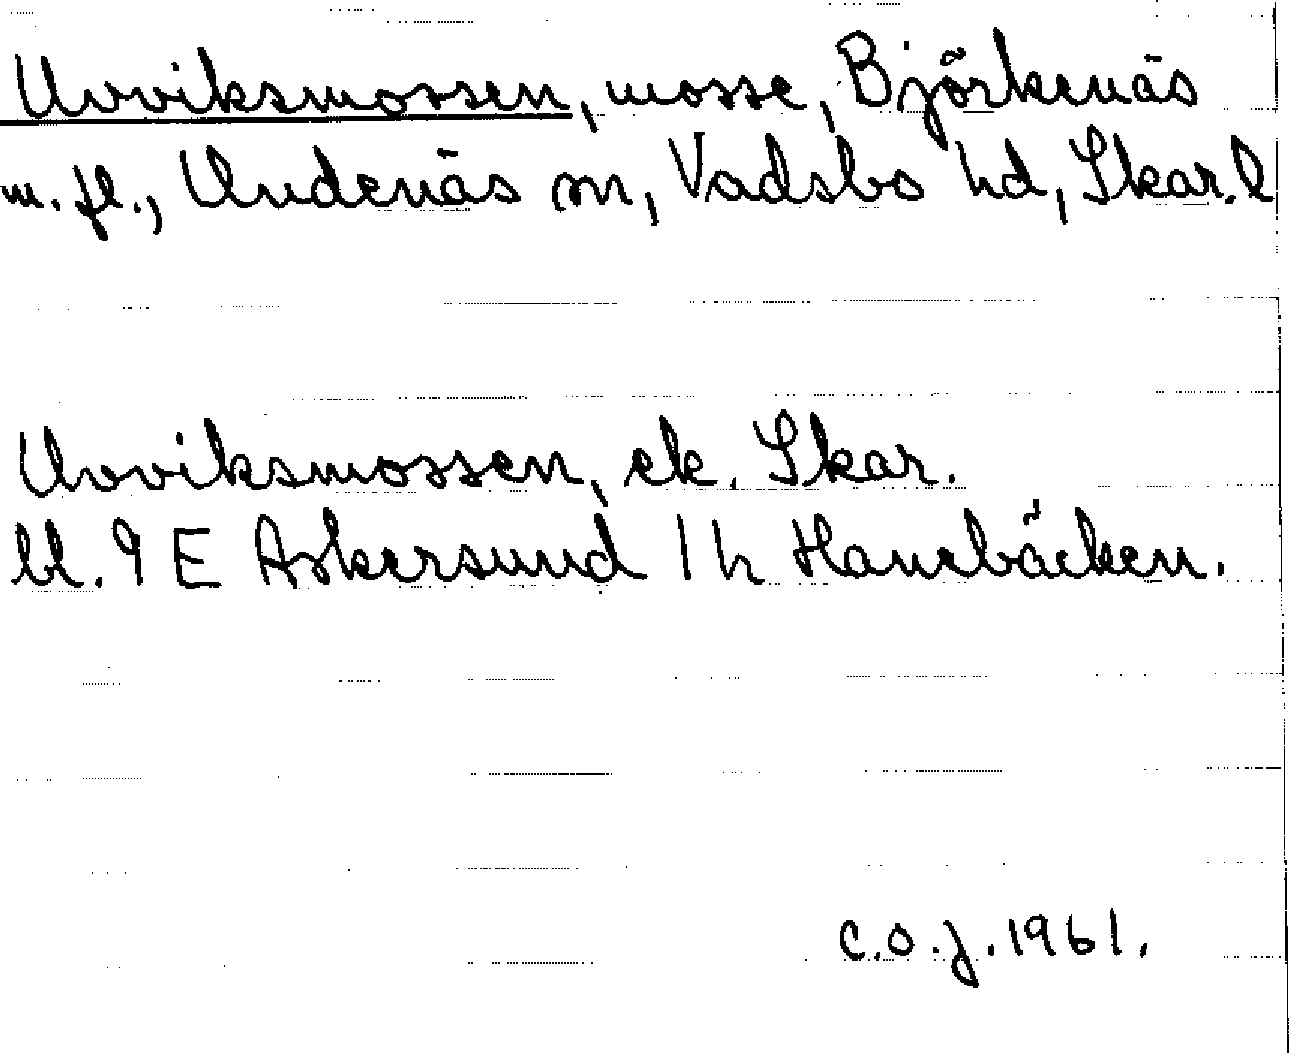 Urviksmossen, mosse, Björkenäs
m. fl., Undenäs sn, Vadsbo hd, Skar. l
Urviksmossen, ek. Skar.
bl. 9 E Askersund 1 h Hanebäcken.
C.O.J. 1961.